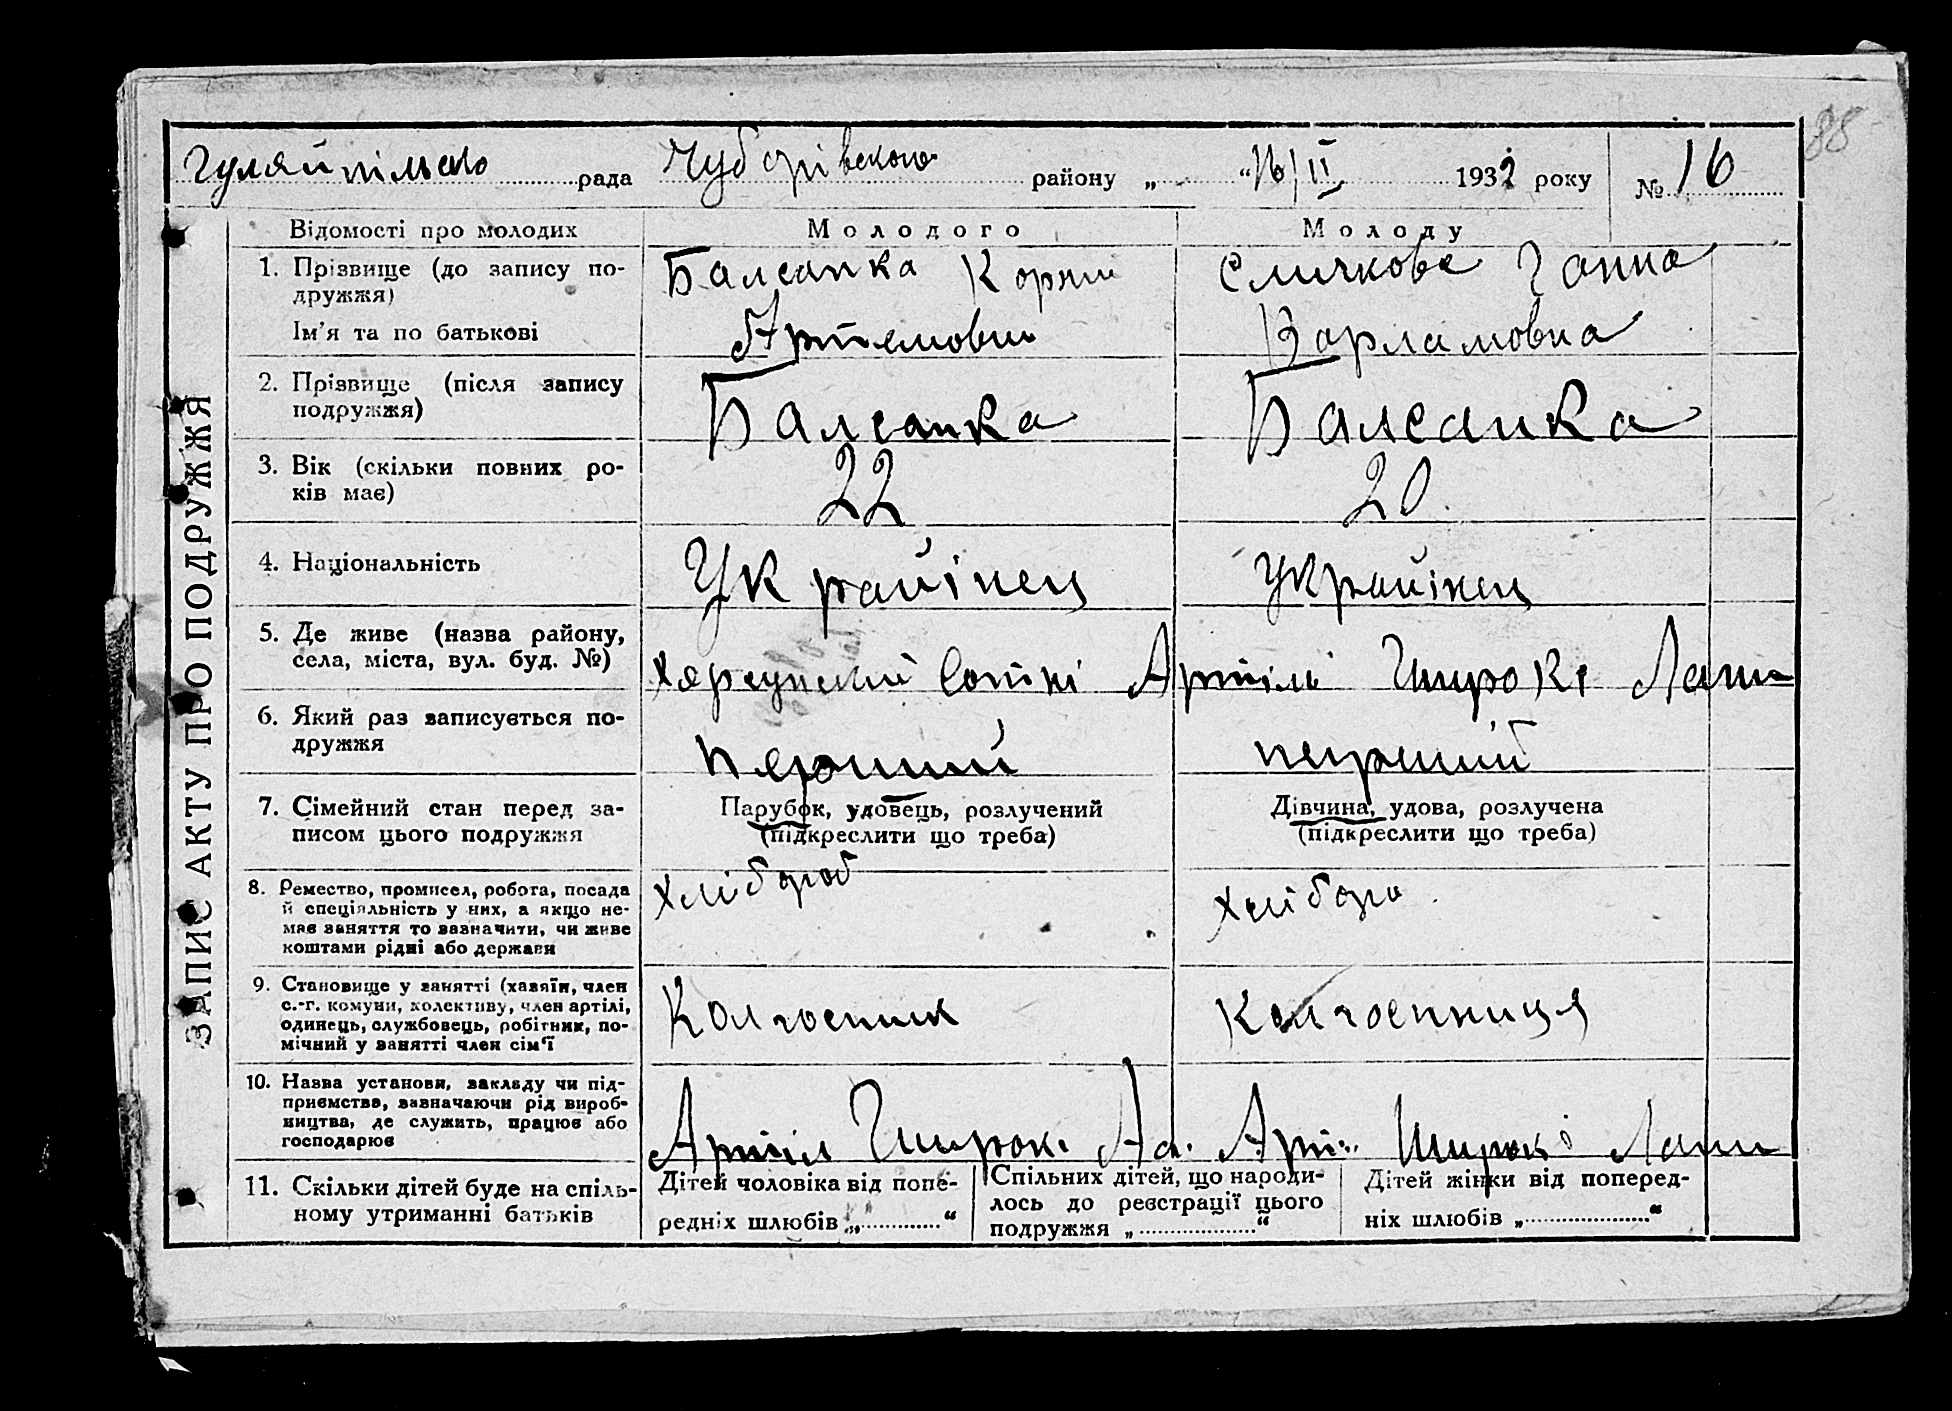 88
Гуляйпільсько рада Чубарівського району „ “ 16/II 1932 року № 16
ЗАПИС АКТУ ПРО ПОДРУЖЖЯ
Відомості про молодих
Молодого
Молоду
1. Прізвище (до запису по-
дружжя)
Ім’я та по батькові
Балсанка Корній
Артемович
Сличкова Ганна
Варламовна
2. Прізвище (після запису
подружжя)
Балсанка
Балсанка
3. Вік (скільки повних ро-
ків має)
22
20
4. Національність
Украйінец
Украйінец
5. Де живе (назва району,
села, міста, вул. буд. №)
Херсунский Сотні Артіль Широкі Лани
6. Який раз записується по-
дружжя
перший
перший
7. Сімейний стан перед за-
писом цього подружжя
Парубок, удовець, розлучений
(підкреслити що треба)
Дівчина, удова, розлучена
(підкреслити що треба)
8. Ремество, промисел, робота, посада
й спеціяльність у них, а якщо не-
має заняття то зазначити, чи живе
коштами рідні або держави
хлібороб
хлібора
9. Становище у занятті (хазяїн, член
с.-г. комуни, колективу, член артілі,
одинець, службовець, робітник, по-
мічний у занятті член сім’ї
Колгоспник
Колгоспниця
10. Назва установи, закладу чи під-
приємства, зазначаючи рід вироб-
ництва, де служить, працює або
господарює
Артіл Широк. Ла. Арт. Широкі Лани
11. Скільки дітей буде на спіль-
ному утриманні батьків
Дітей чоловіка від попе-
редніх шлюбів „ “
Спільних дітей, що народи-
лось до реєстрації цього
подружжя „ “
Дітей жінки від поперед-
ніх шлюбів „ “